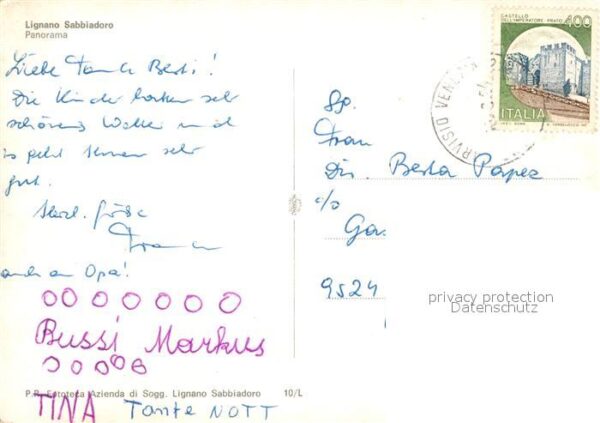 Lignano Sabbiadoro
Panorama
Liebe Tante Berti!
Die Kinder haben sehr
schönes Wetter und
es geht ihnen sehr
gut.
Herzl. Grüße
auch an Opa!
OOOOOOO
Bussi Markus
OOOOO
P.R. Fototeca Azienda di Sogg. Lignano Sabbiadoro 10/L
TINA Tante NOTT
CASTELLO
DELL'IMPERATORE PRATO 400
ITALIA
TARVISIO
Frau
Dir. Berta Papez
c/o
9524
privacy protection
Datenschutz